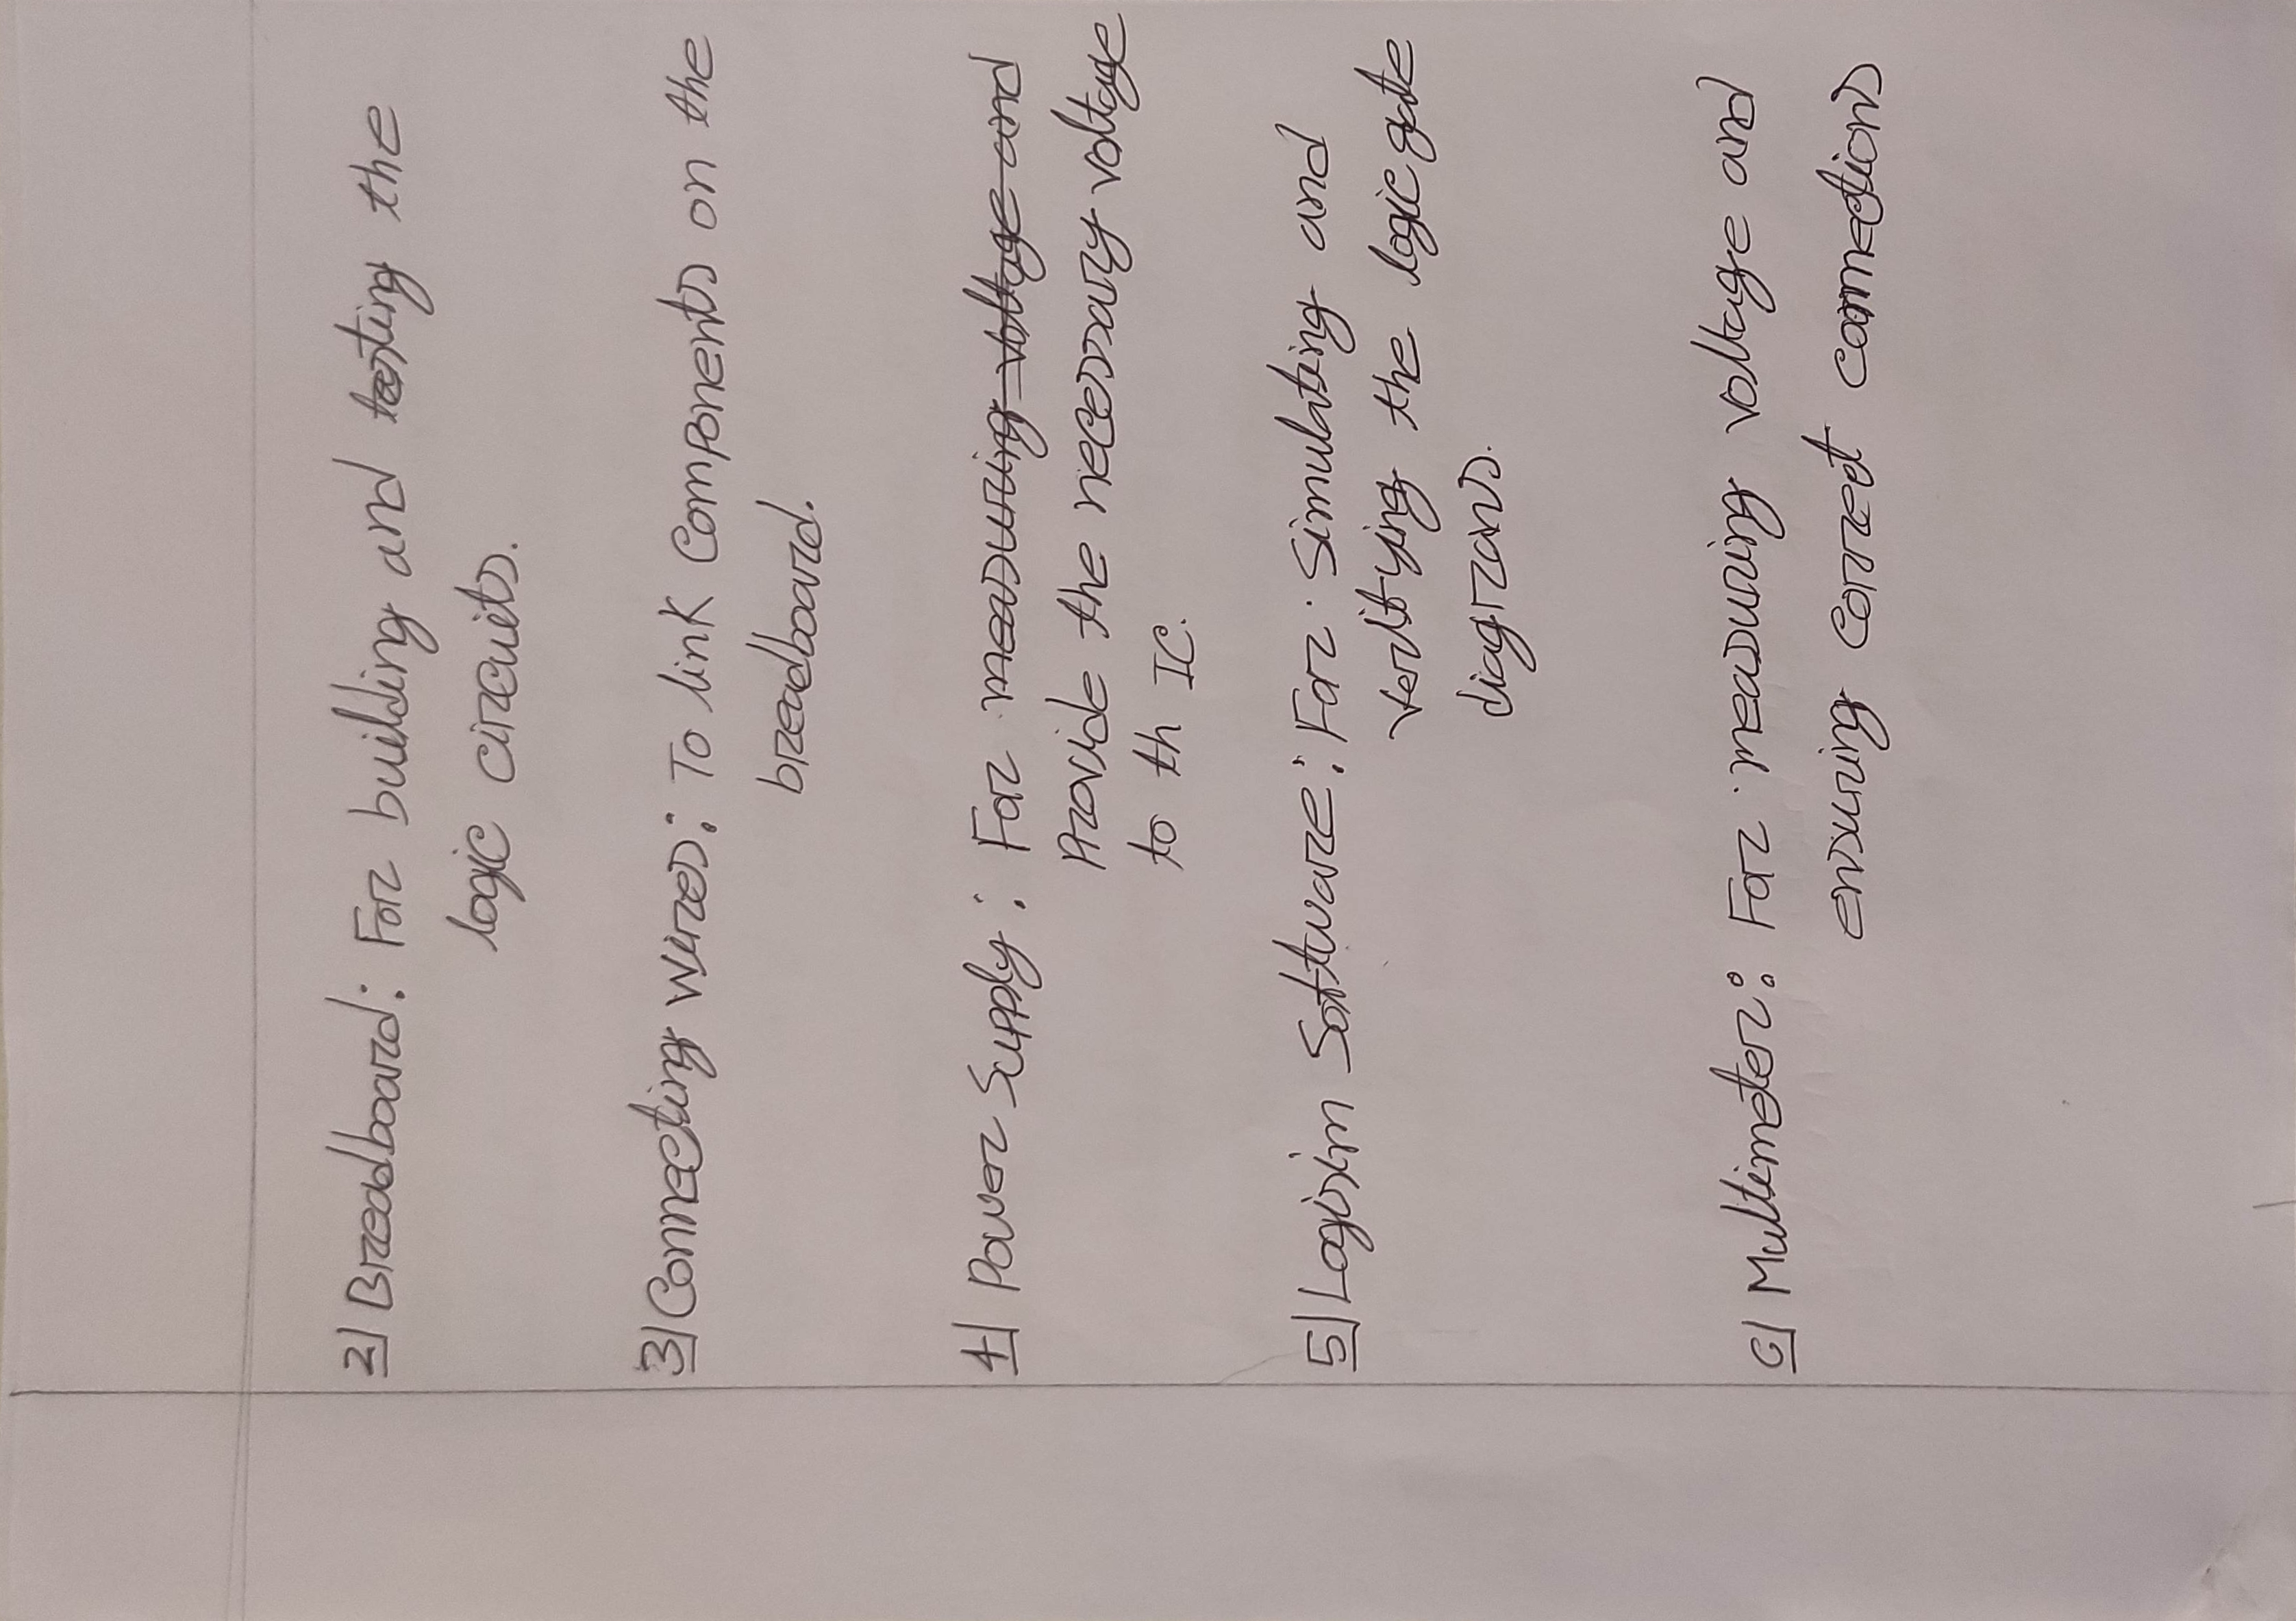 2) Breadboard: For building and testing the
logic circuits.
3) Connecting wires: To link components on the
breadboard.
4) Power Supply: For measuring voltage and
Provide the necessary voltage
to th IC.
5) Logisim Software: For Simulating and
Verifying the logic gate
diagrams.
6) Multimeter: For measuring voltage and
ensuring correct connections